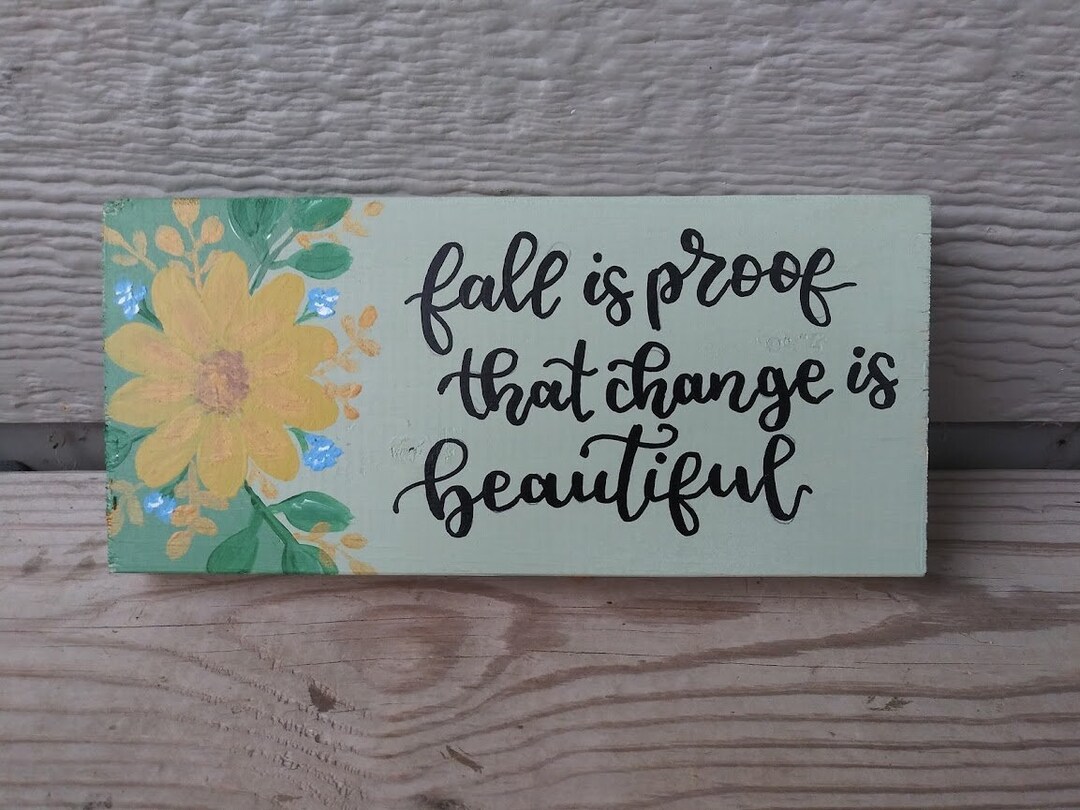 fall is proof
that change is
beautiful